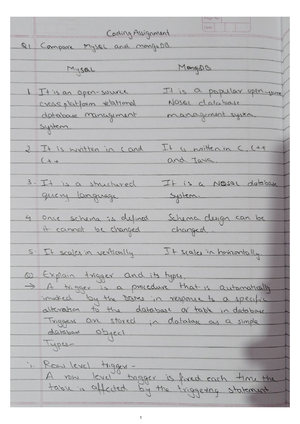 Coding Assignment
Q1 Compare MySQL and mongoDB
MySQL MongoDB
1. It is an open-source It is a popular open-source,
cross platform relational NOSQL database
database management management system
system
2. It is written in C and It is written in C, C++
C++ and Java.
3. It is a structured It is a NOSQL database
query language system.
4. Once schema is defined Schema design can be
it cannot be changed changed.
5. It scales in vertically It scales in horizontally.
Explain trigger and its types.
→ A trigger is a procedure that is automatically
invoked by the DBMS in response to a specific
alteration to the database or table in database
Triggers are stored in database as a simple
database object
Types-
Row level trigger -
A row level trigger is fired each time the
table is affected by the triggering statement